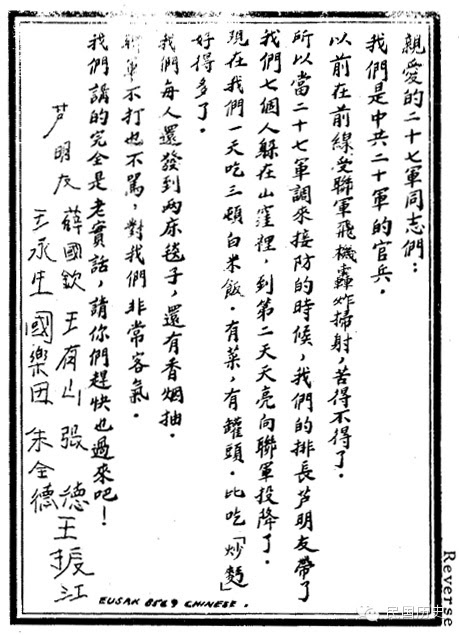 親愛的二十七軍同志們：
我們是中共二十軍的官兵．
以前在前線受聯軍飛機轟炸掃射，苦得不得了．
所以當二十七軍調來接防的時候，我們的排長芦明友帶了
我們七個人躲在山窪裡，到第二天天亮向聯軍投降了．
現在我們一天吃三頓白米飯．有菜，有罐頭．比吃「炒麵」
好得多了．
我們每人還發到兩床毯子，還有香烟抽．
聯軍不打也不罵，對我們非常客氣．
我們講的完全是老實話，請你們趕快也過來吧！
芦明友 薛國欽 王有山 張德 王振江
王承生 國樂田 朱全德
EUSAK 8569 CHINESE.
Reverse
民国历史